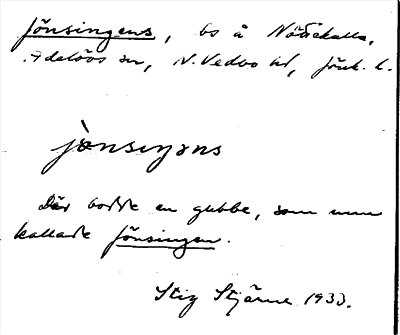 Jönsingens, bs å Nöbbekalla,
Adelövs sn, N. Vedbo hd, Jönk. l.
jönsiŋəns
Där bodde en gubbe, som man
kallade Jönsingen.
Stig Stjärne 1933.